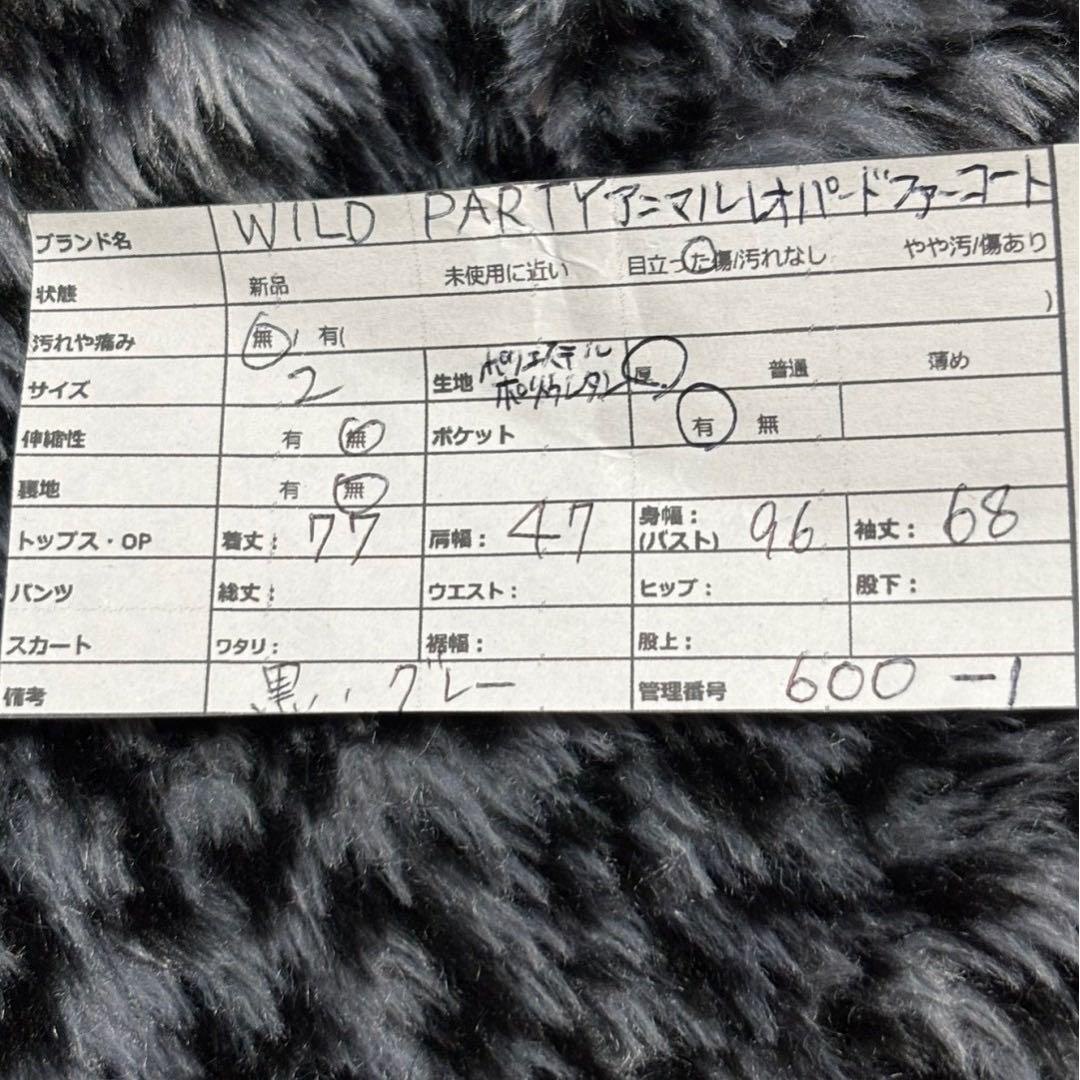 ブランド名 WILD PARTY アニマルレオパードファーコート
状態 新品 未使用に近い 目立った傷/汚れなし やや汚/傷あり
汚れや痛み 無 / 有( )
サイズ 2 生地 ポリエステル ポリウレタン 厚 普通 薄め
伸縮性 有 無 ポケット 有 無
裏地 有 無
トップス・OP 着丈: 77 肩幅: 47 身幅:(バスト) 96 袖丈: 68
パンツ 総丈: ウエスト: ヒップ: 股下:
スカート ワタリ: 裾幅: 股上:
備考 黒、、グレー 管理番号 600-1